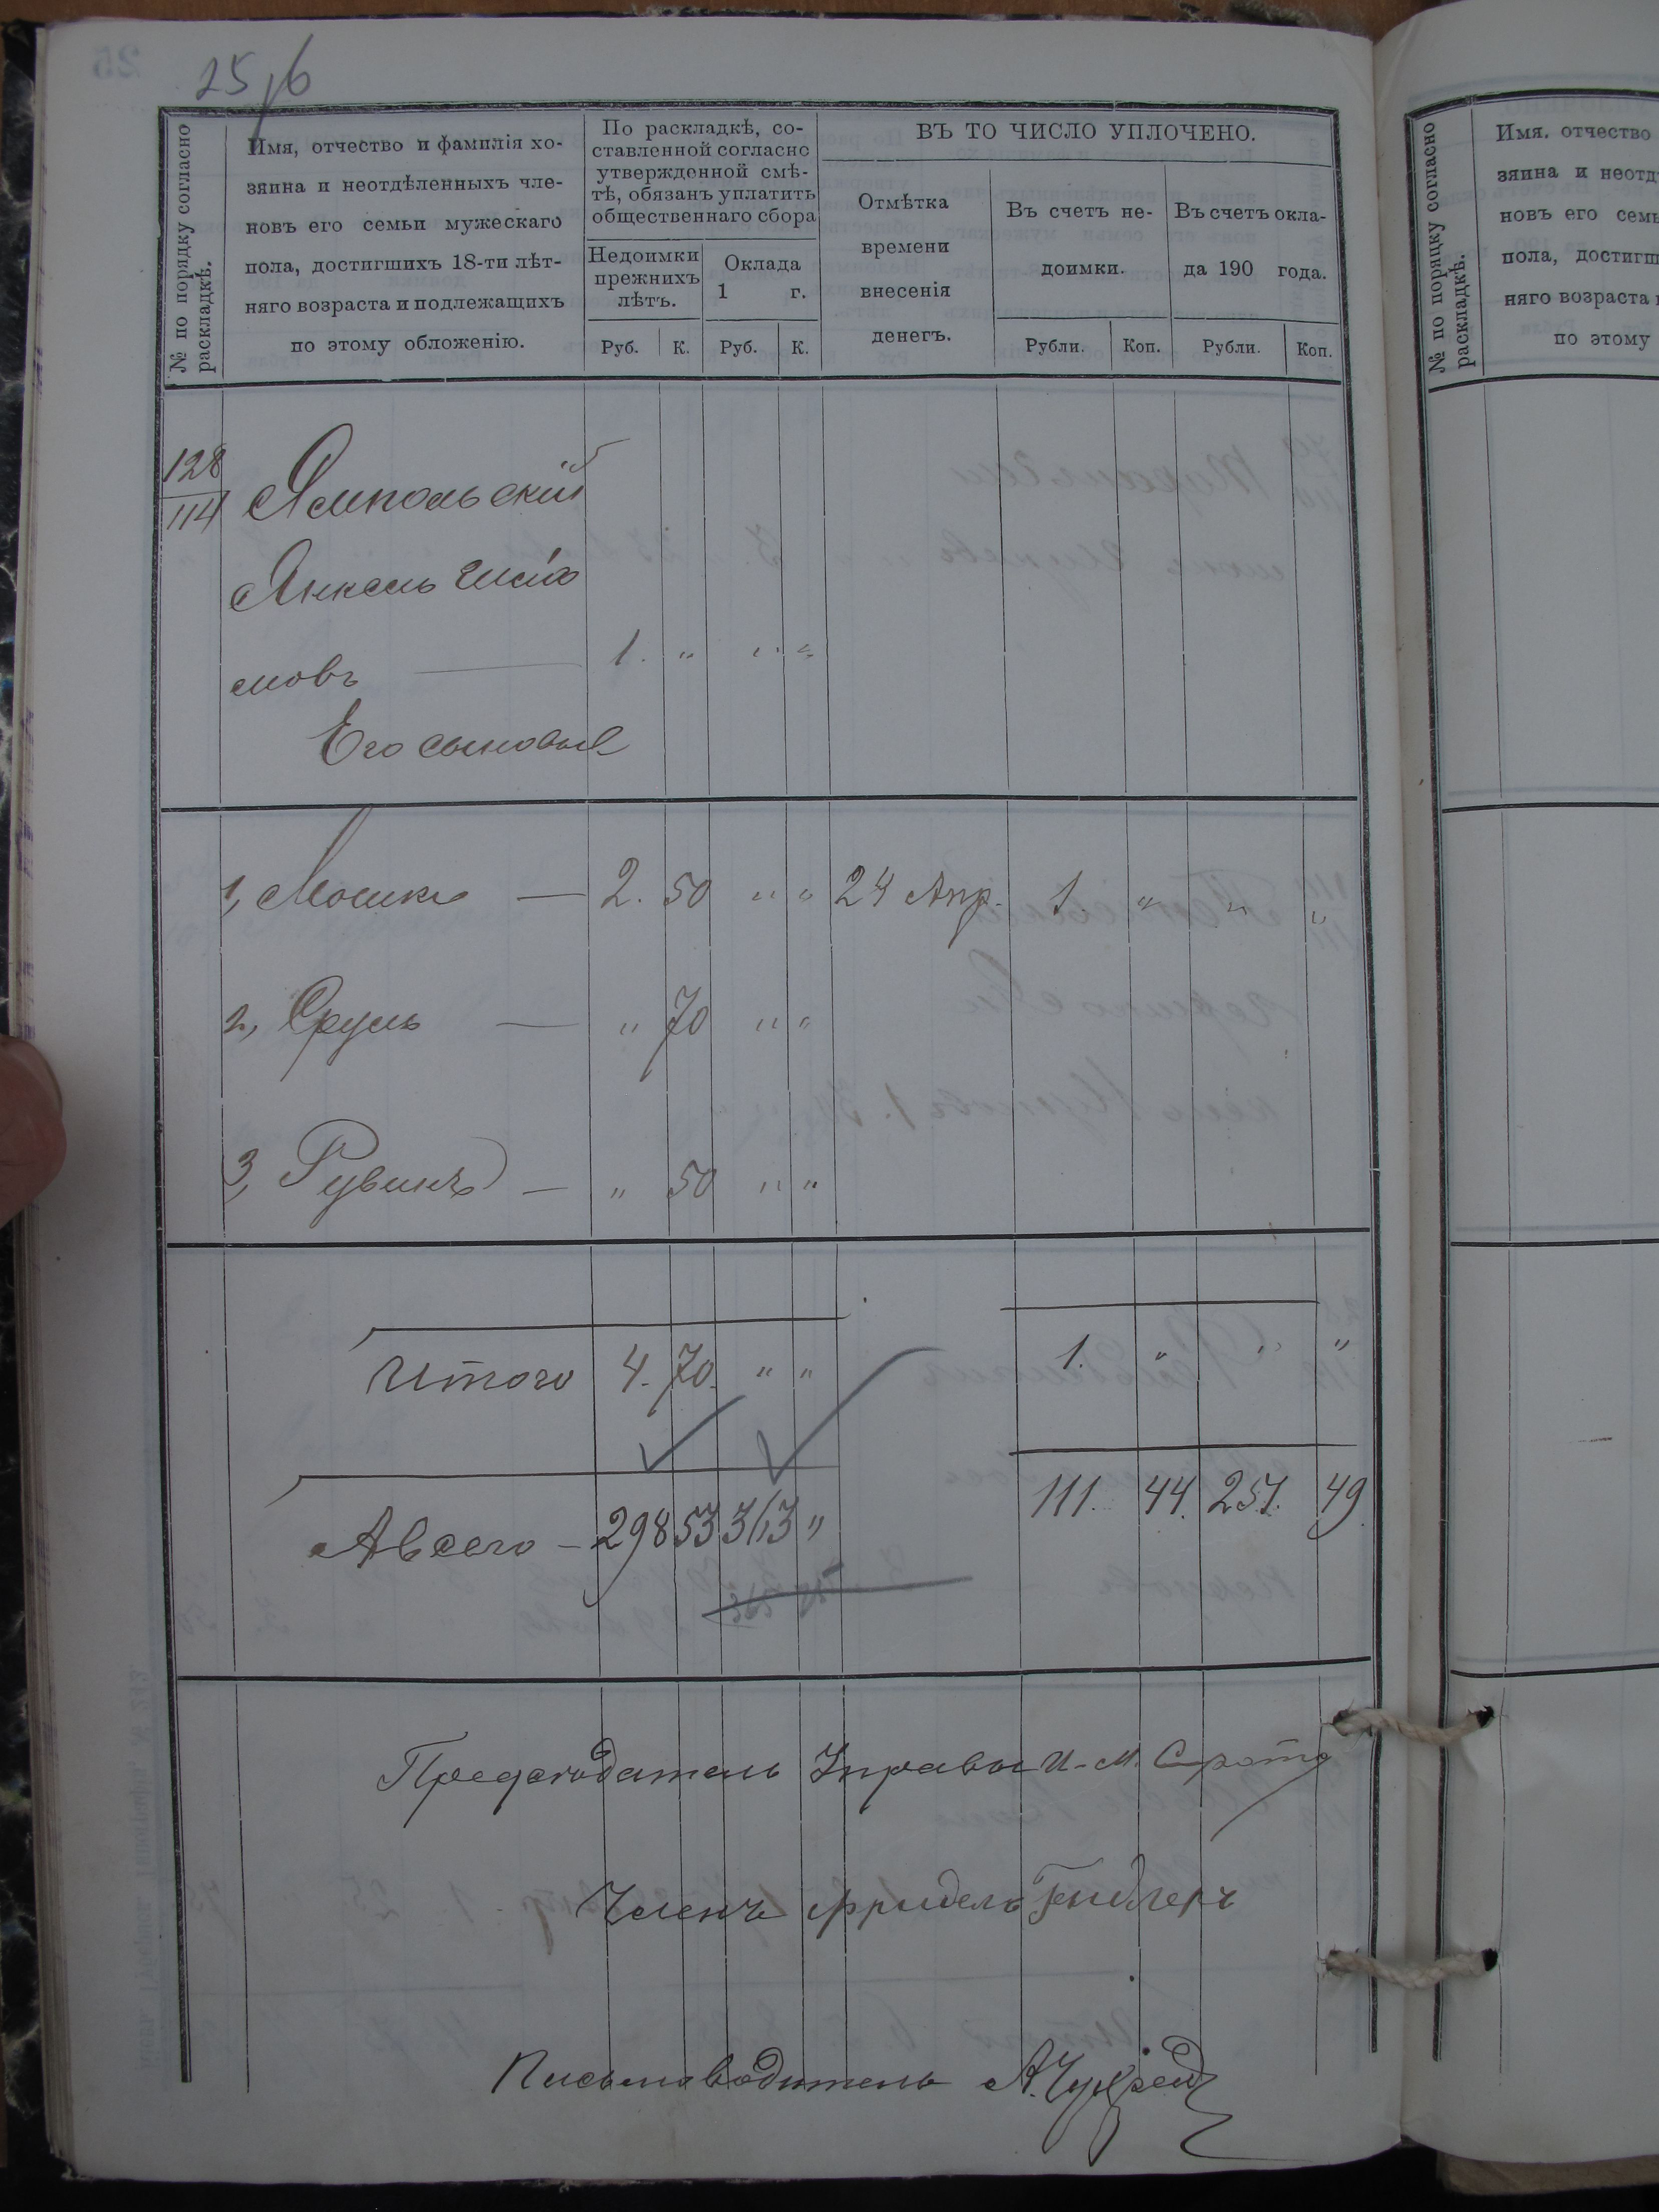 25об
№ по порядку согласно раскладкѣ.
Имя, отчество и фамилія хо-
зяина и неотдѣленныхъ чле-
новъ его семьи мужескаго
пола, достигшихъ 18-ти лѣт-
няго возраста и подлежащихъ
по этому обложенію.
По раскладкѣ, со-
ставленной согласно
утвержденной смѣ-
тѣ, обязанъ уплатить
общественнаго сбора
Недоимки
прежнихъ
лѣтъ.
Оклада
1 г.
Руб. К. Руб. К.
ВЪ ТО ЧИСЛО УПЛОЧЕНО.
Отмѣтка
времени
внесенія
денегъ.
Въ счетъ не-
доимки.
Въ счетъ окла-
да 190 года.
Рубли. Коп. Рубли. Коп.
128
114
Ямпольскій
Янкель
мовъ — 1. " " "
Его сыновья
1, Мошко — 2. 50 " " 24 Апр. 1. " " "
2, Сруль — " 70 " "
3, Рувинъ — " 50 " "
Итого 4. 70. " " 1. " " "
А всего - 298 53 313 " 111. 44. 257. 49
Предсѣдатель Управы И. М. Сирота
Членъ Фридель
Письмоводитель А.
№ по порядку согласно
раскладкѣ.
Имя, отчество
зяина и неотд
новъ его семь
пола, достигш
няго возраста
по этому